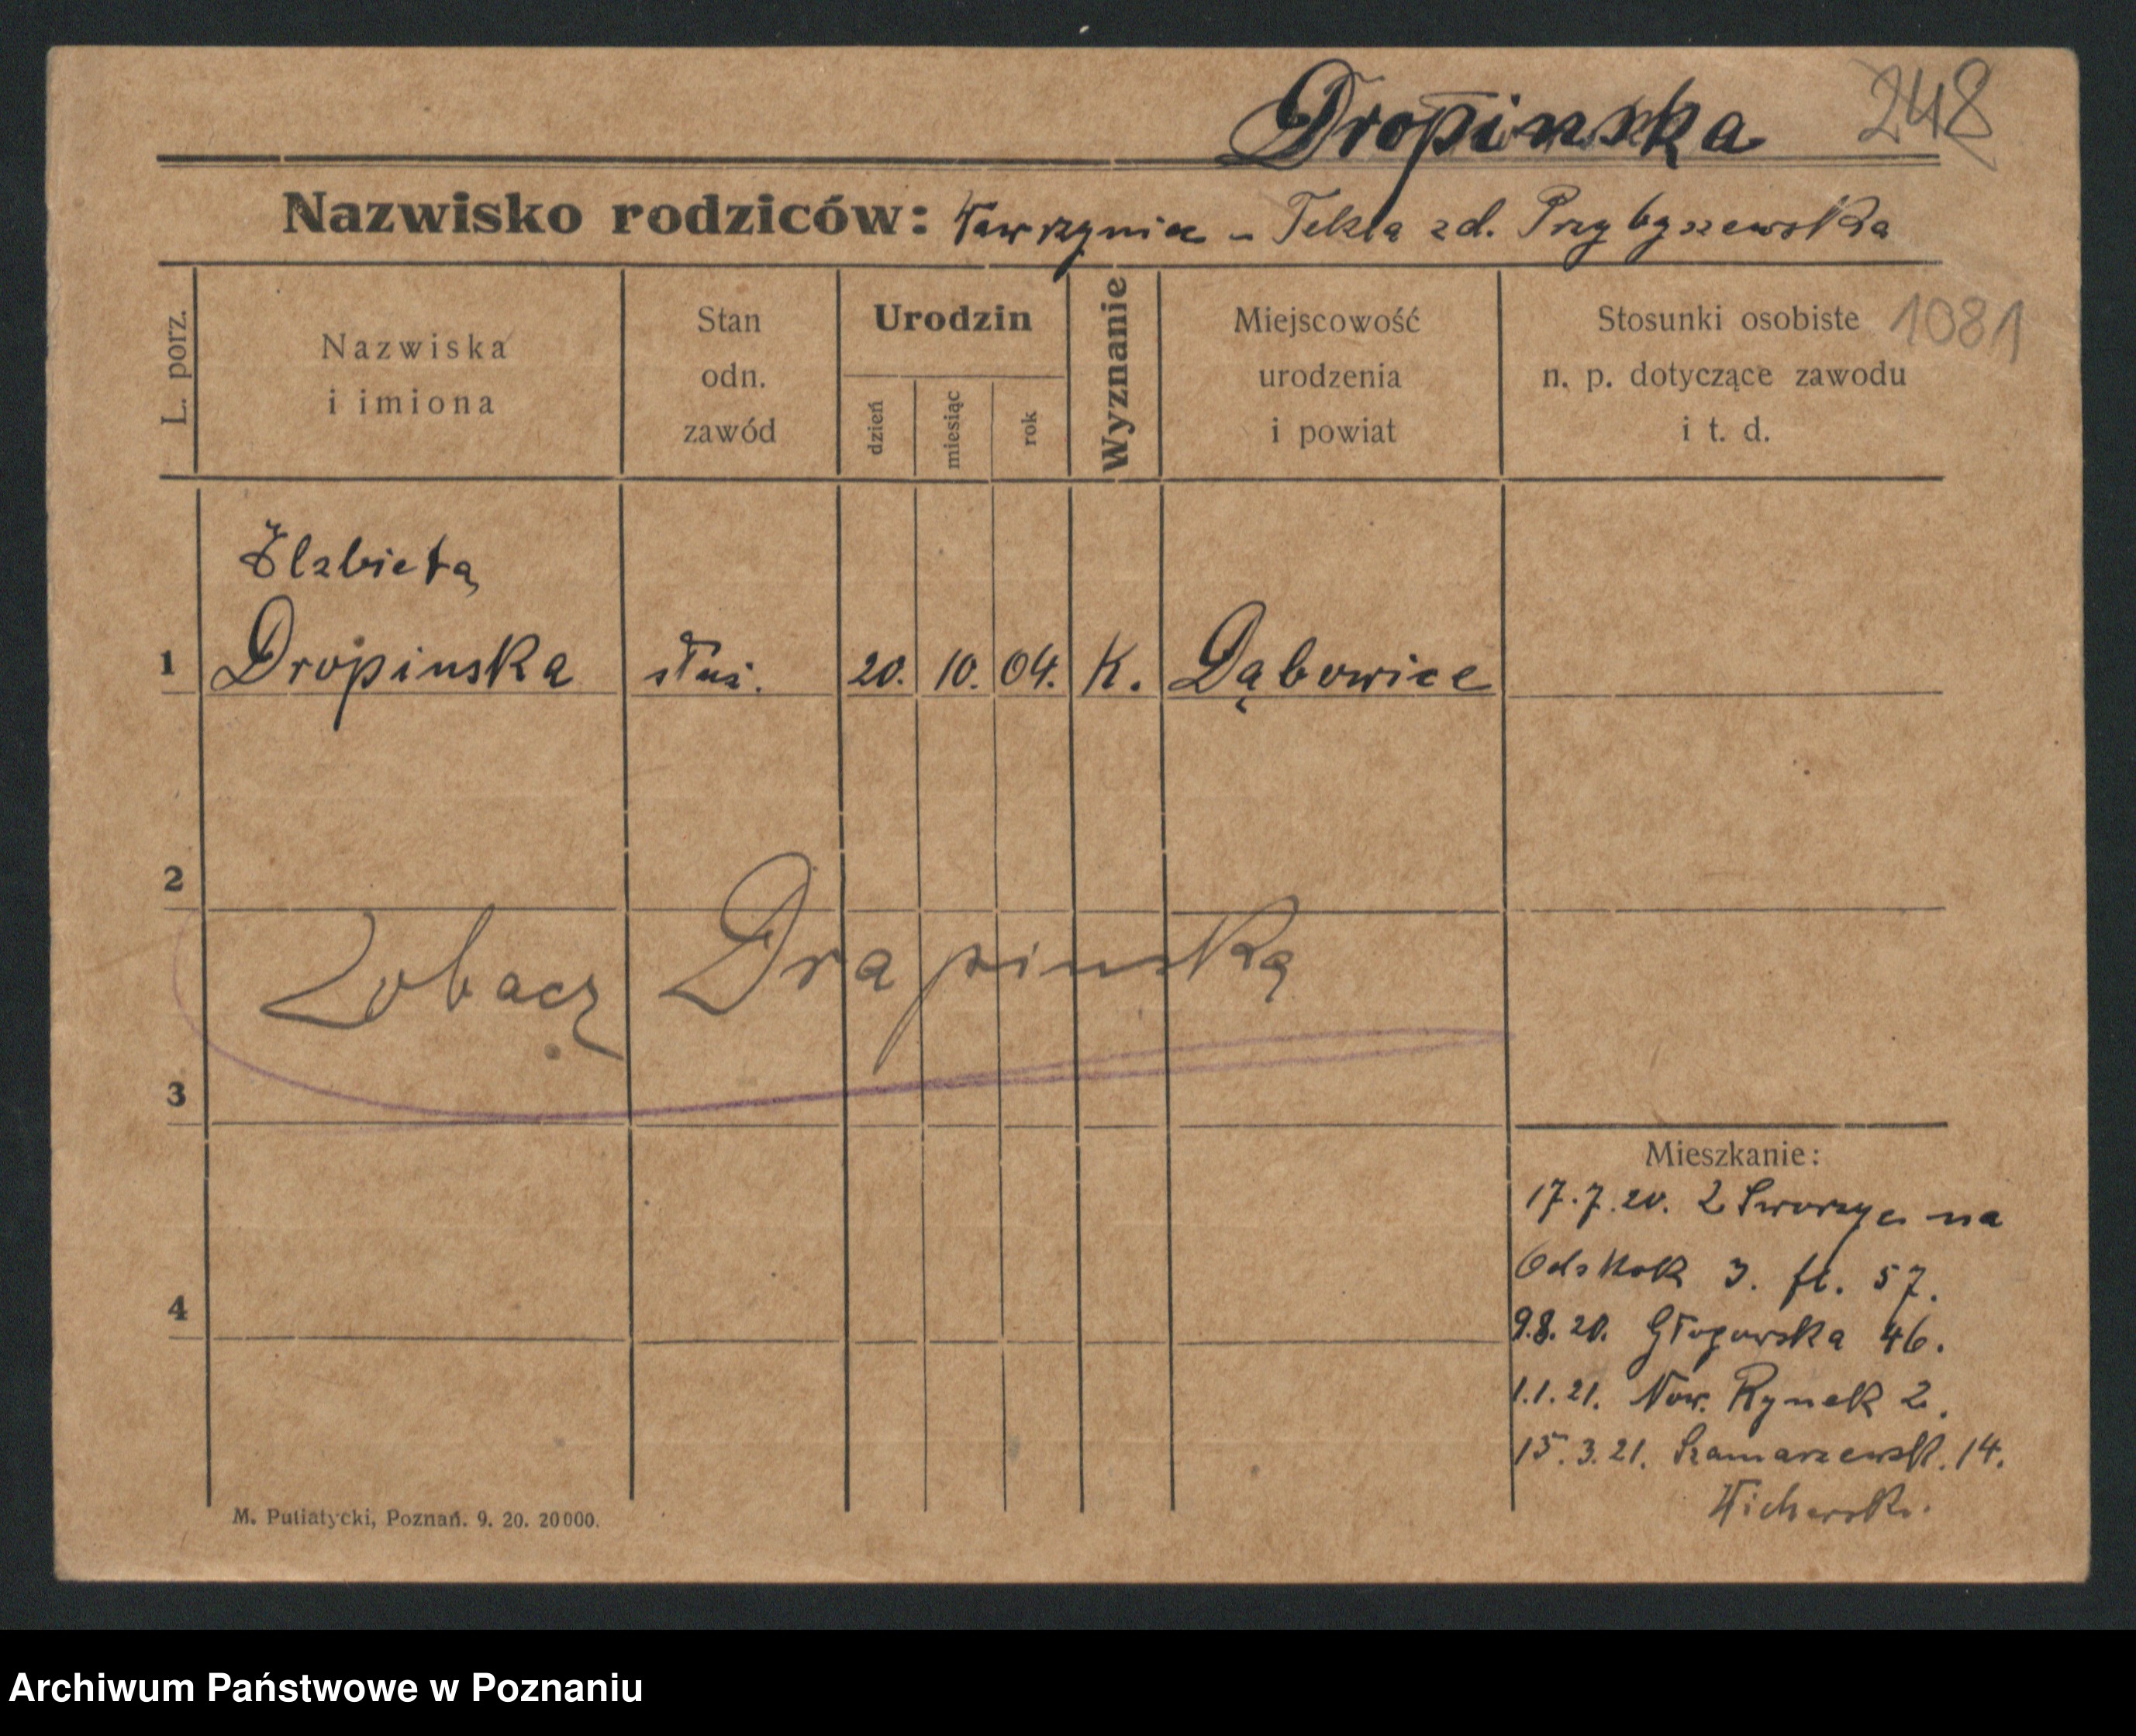 Dropinska 248
Nazwisko rodziców: Wawrzyniec - Tekla zd. Przybyszewska
L. porz.
Nazwiska
i imiona
Stan
odn.
zawód
Urodzin
dzień
miesiąc
rok
Wyznanie
Miejscowość
urodzenia
i powiat
Stosunki osobiste 1081
n. p. dotyczące zawodu
i t. d.
Elzbieta
1 Dropinska służ. 20. 10. 04. K. Dąbowice
2
Zobacz Drapinską
3
4
Mieszkanie:
17.7.20. Z na
3. fl. 57.
9.8.20. Głogowska 46.
1.1.21. Now. Rynek 2.
15.3.21. Szamarzewsk. 14.
M. Putiatycki, Poznań. 9. 20. 20000.
Archiwum Państwowe w Poznaniu